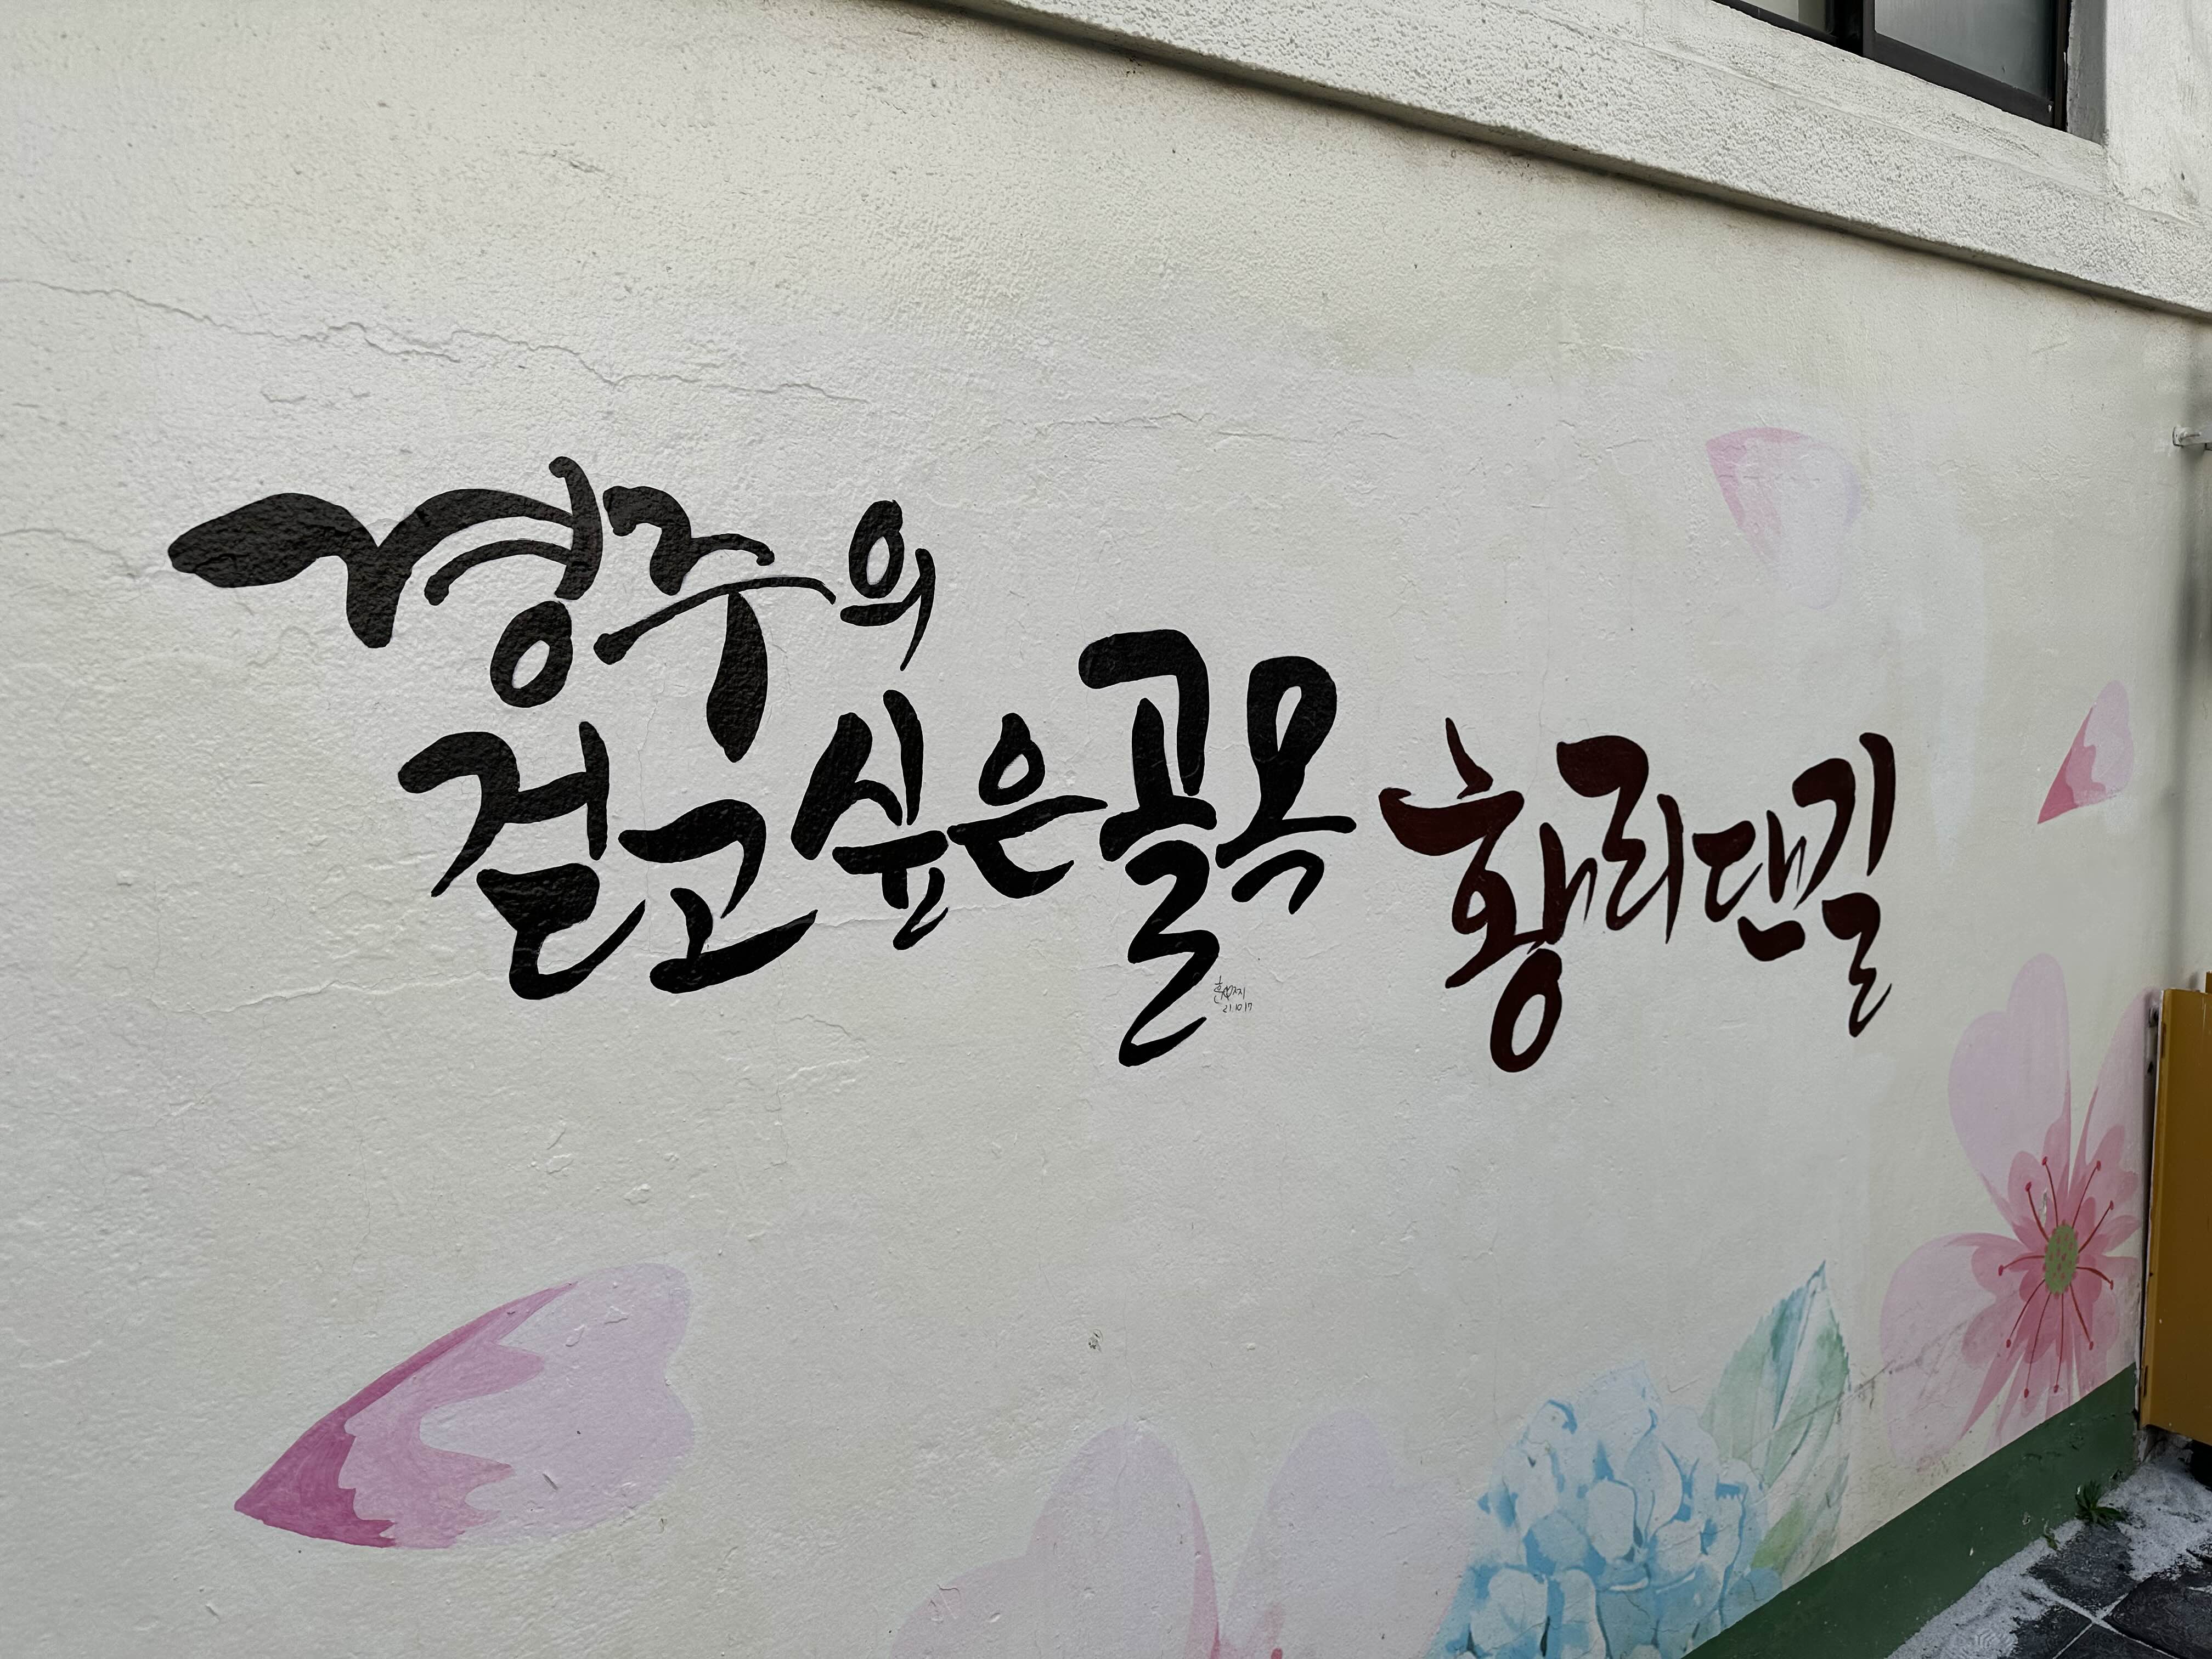 경주의
걷고싶은골목 황리단길
21.10.17